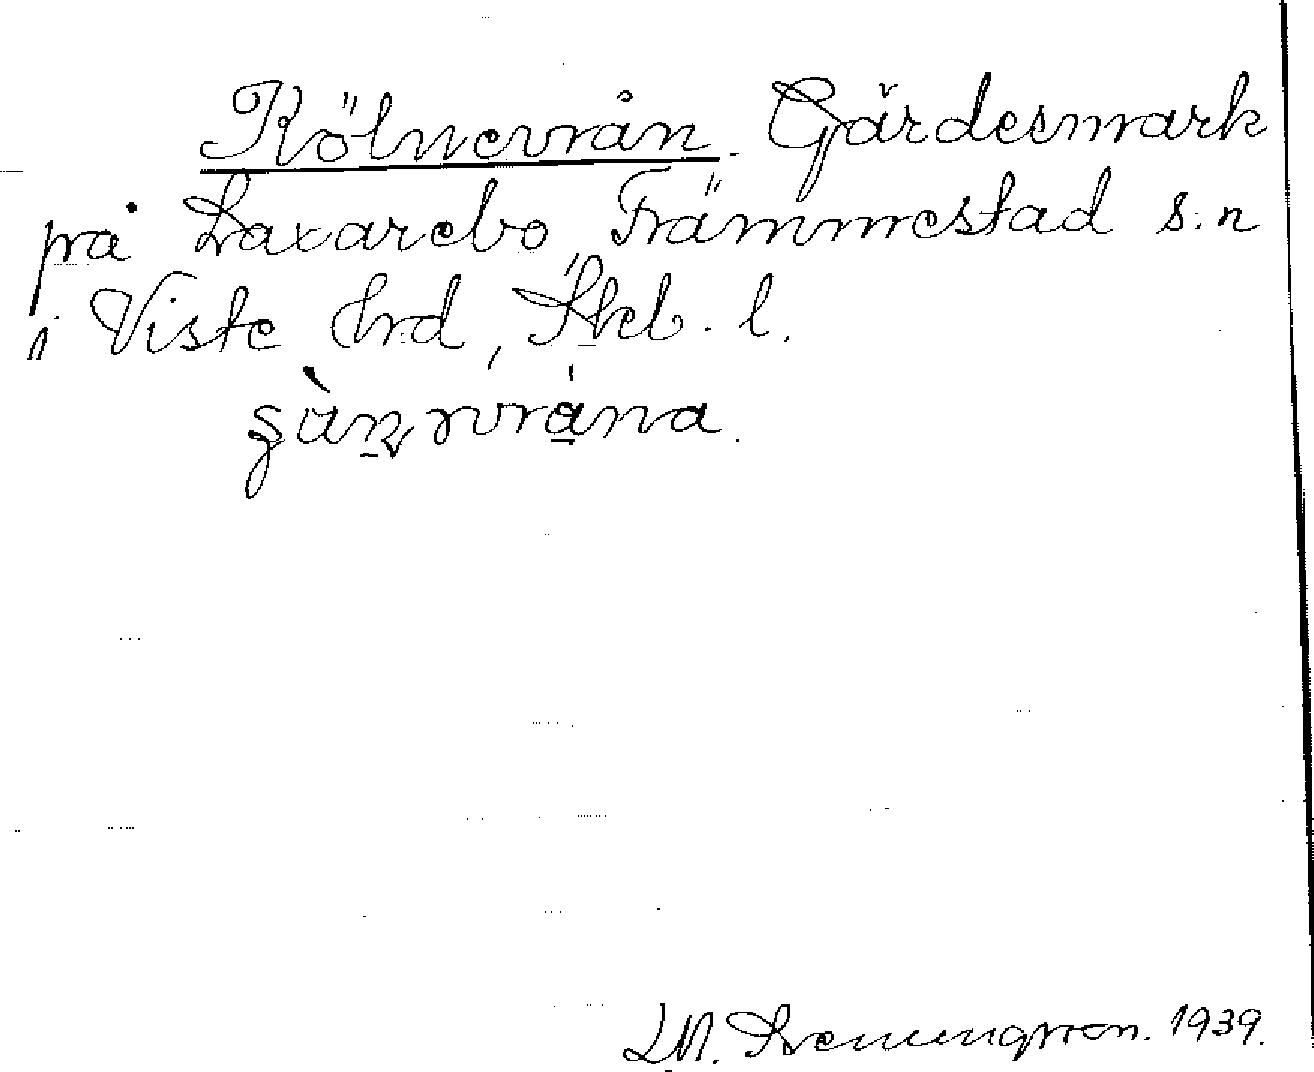 Kölnevrån. Gärdesmark
på Laxarebo, Främmestad s:n
i Viste hrd, Skb. l.
L.M. Svenungsson. 1939.